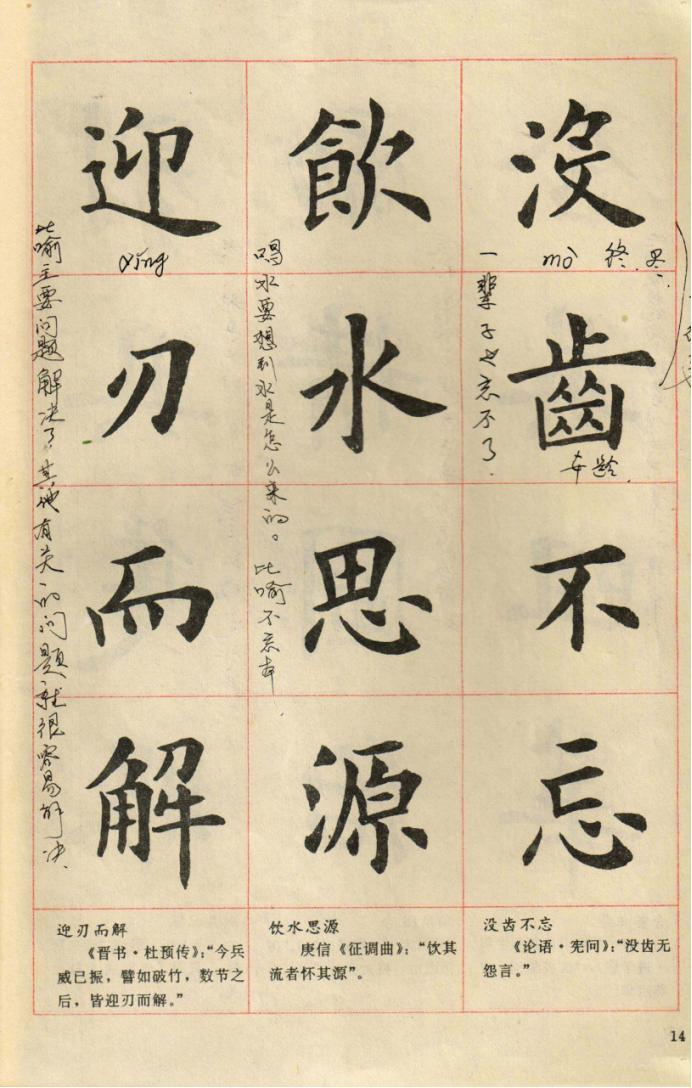 没齿不忘
飲水思源
迎刃而解
mò 终
一辈子也忘不了.
年龄.
喝水要想到水是怎么来的。比喻不忘本.
yíng
比喻主要问题解决了,其他有关的问题就很容易解决.
没齿不忘
《论语·宪问》:“没齿无
怨言。”
饮水思源
庾信《征调曲》:“饮其
流者怀其源”。
迎刃而解
《晋书·杜预传》:“今兵
威已振,譬如破竹,数节之
后,皆迎刃而解。”
14